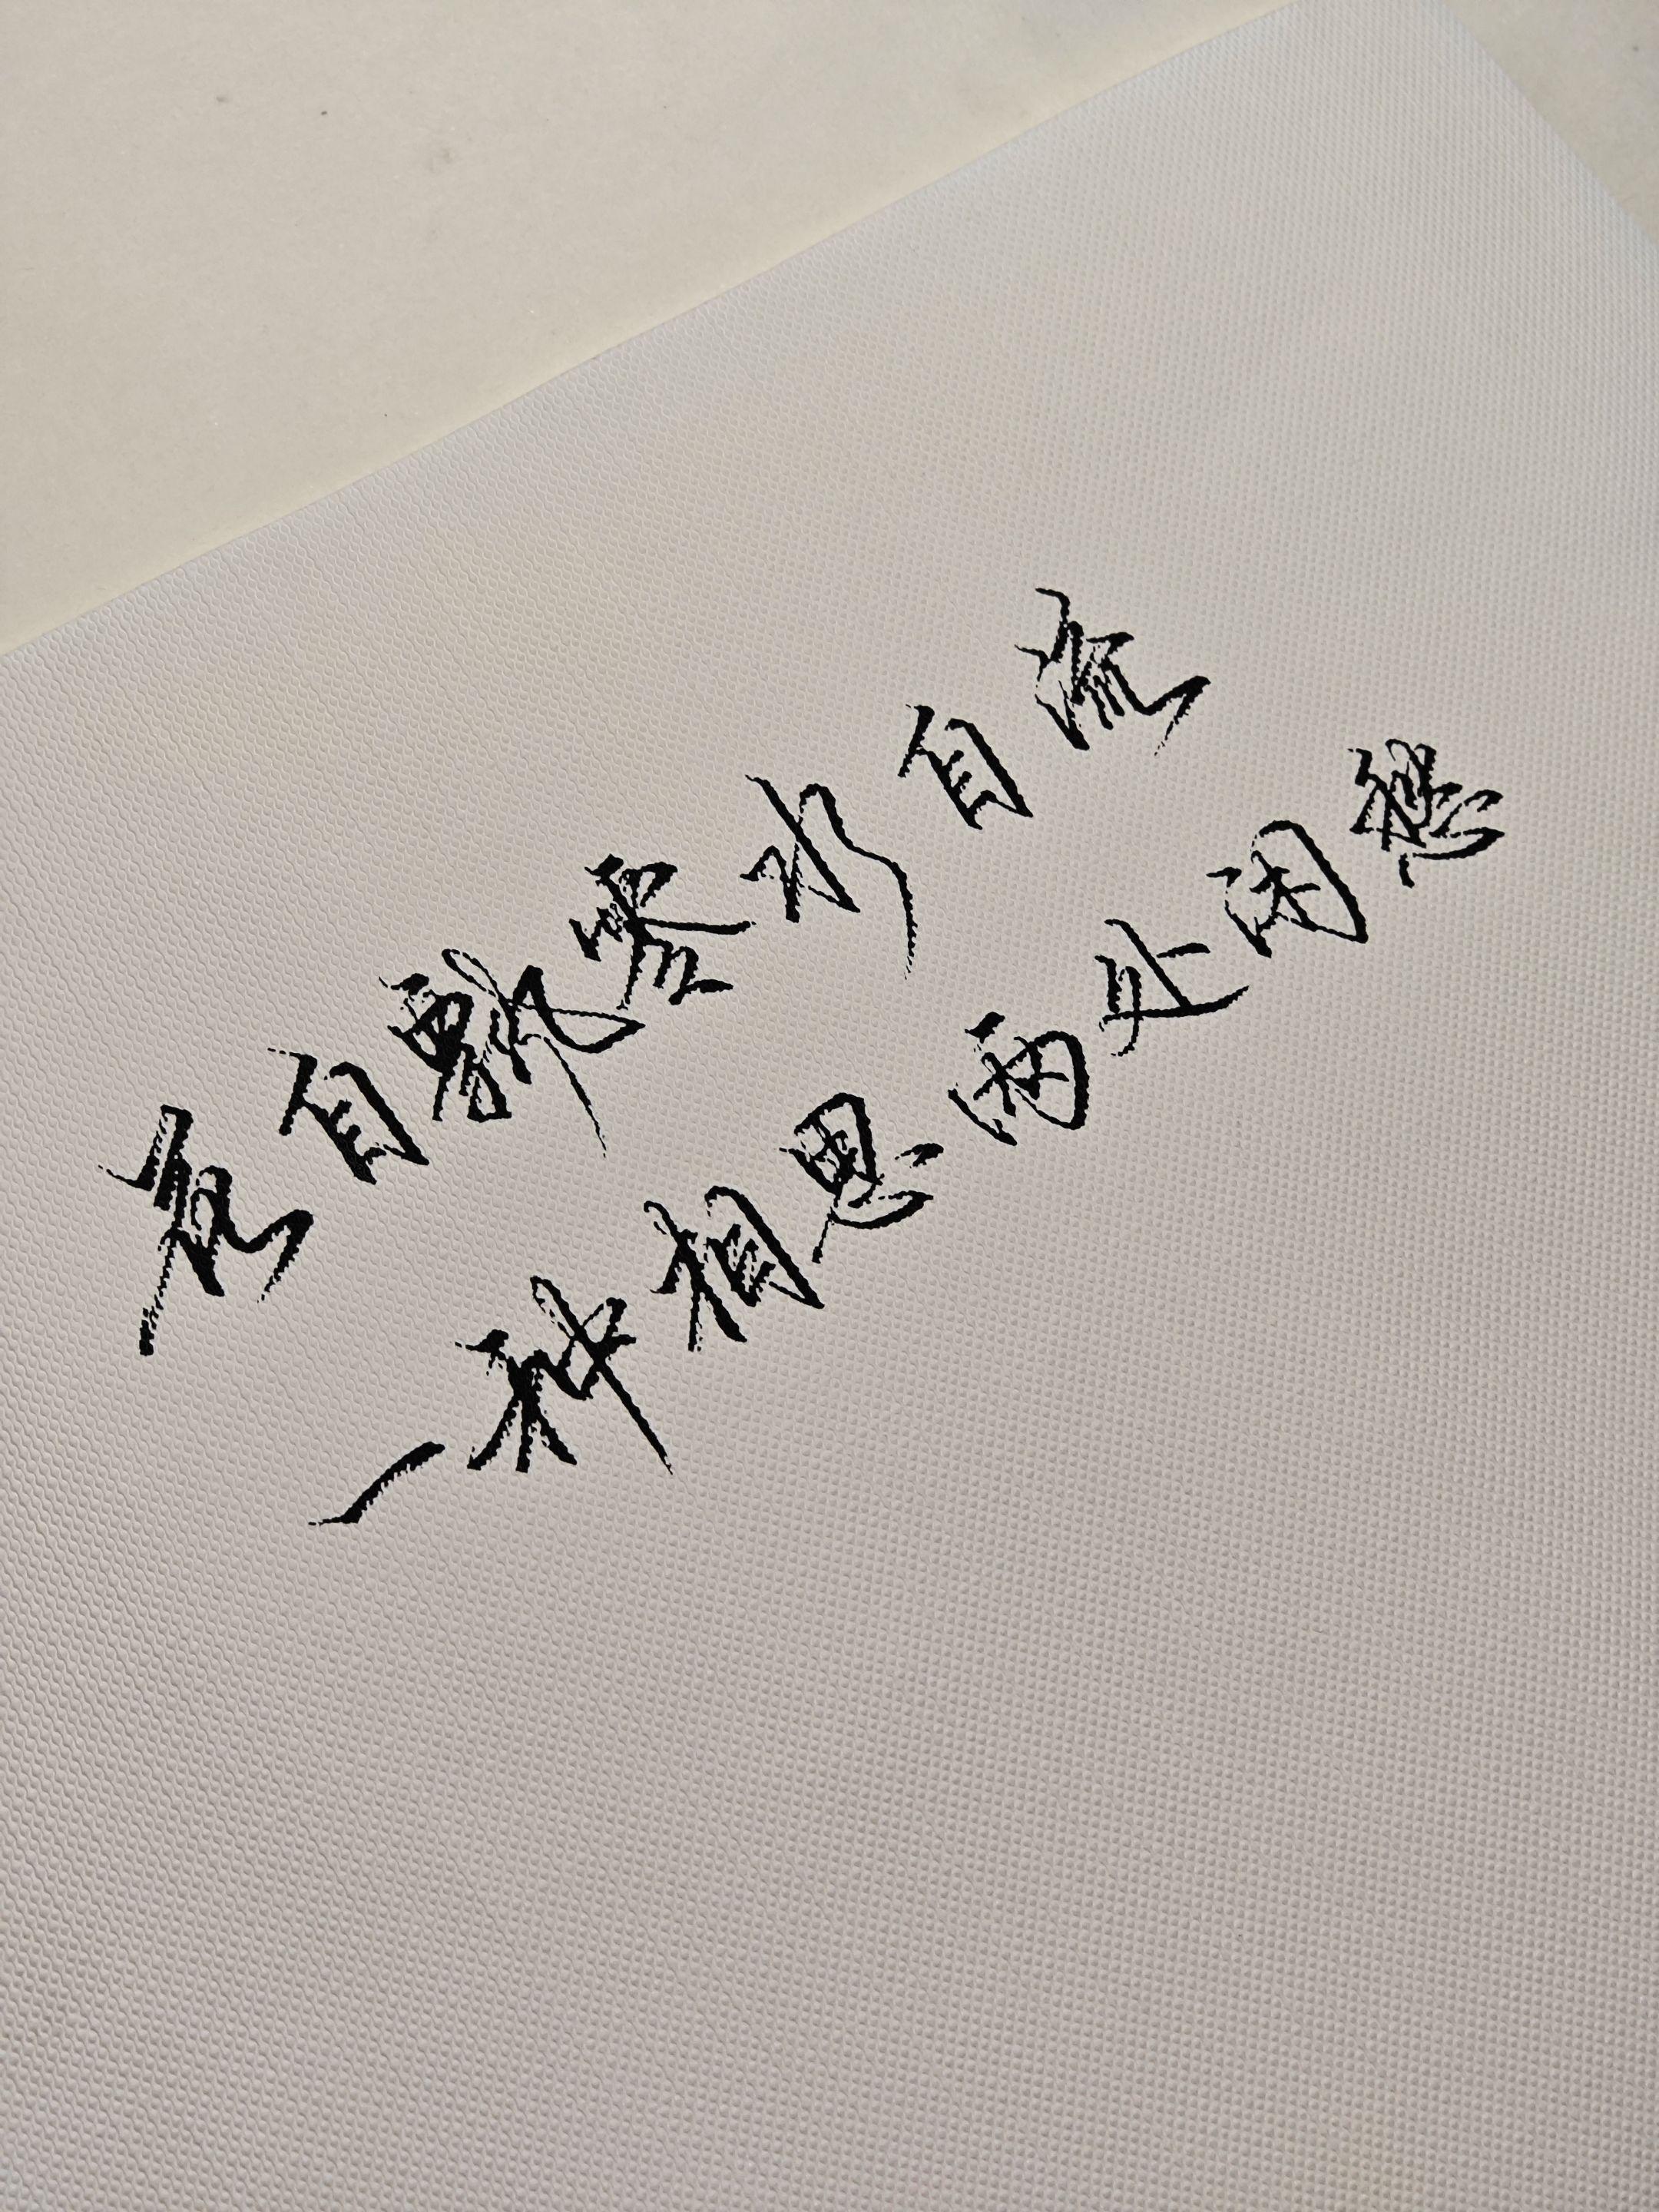 花自飘零水自流
一种相思两处闲愁